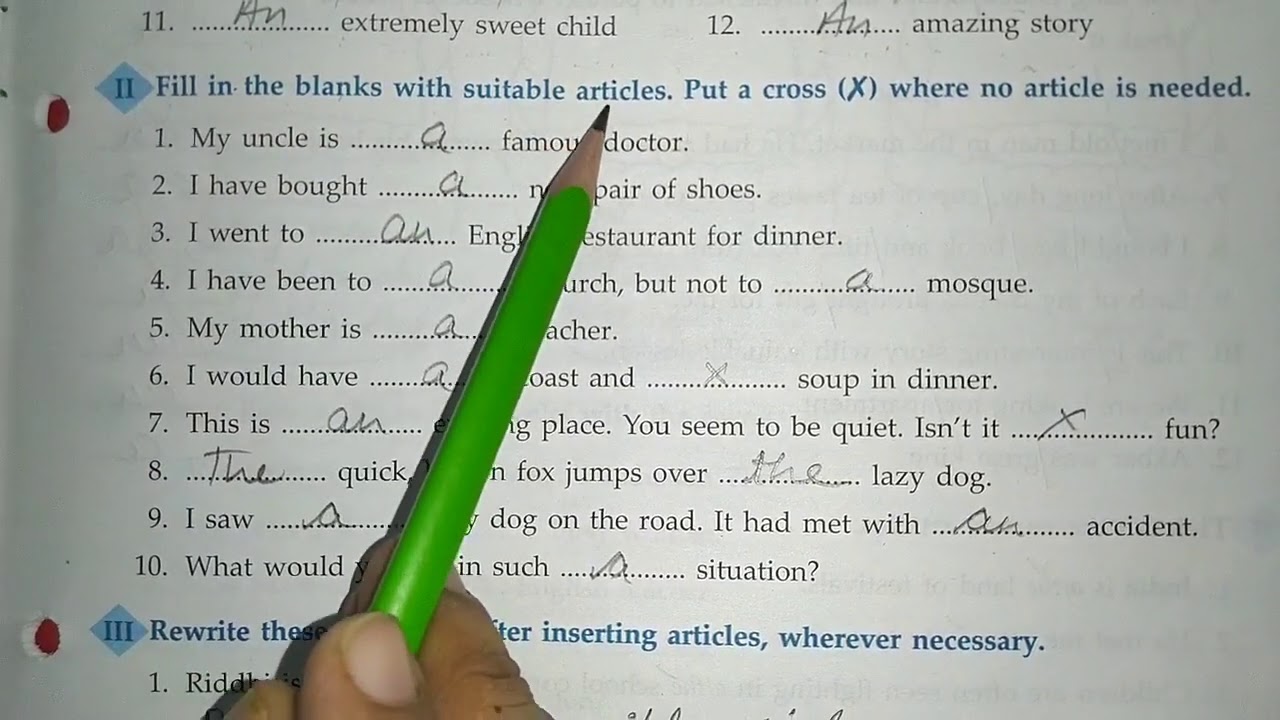 11. ......An...... extremely sweet child 12. ......An...... amazing story
II Fill in the blanks with suitable articles. Put a cross (✗) where no article is needed.
1. My uncle is ......a...... famou doctor.
2. I have bought ......a...... pair of shoes.
3. I went to ......an...... Engl estaurant for dinner.
4. I have been to ......a...... urch, but not to ......a...... mosque.
5. My mother is ......a...... acher.
6. I would have ......a...... oast and ......x...... soup in dinner.
7. This is ......an...... g place. You seem to be quiet. Isn't it ......x...... fun?
8. ......The...... quick, n fox jumps over ......the...... lazy dog.
9. I saw ......a...... y dog on the road. It had met with ......an...... accident.
10. What would in such ......a...... situation?
III Rewrite these ter inserting articles, wherever necessary.
1. Riddhi is